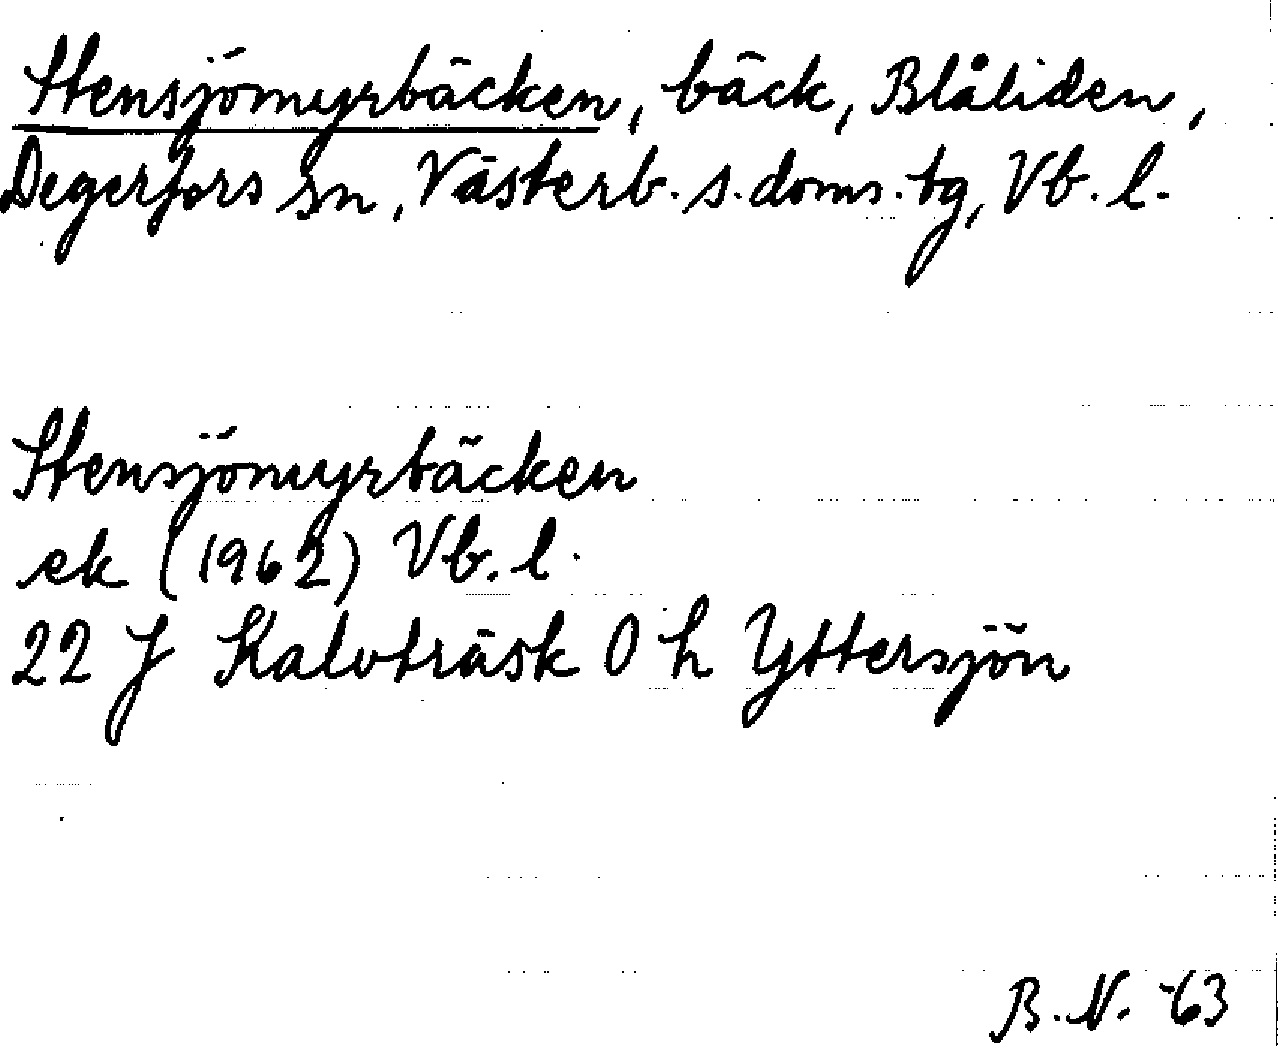 Stensjömyrbäcken, bäck, Blåliden,
Degerfors sn, Västerb. s. doms. tg, Vb. l.
Stensjömyrbäcken
ek (1962) Vb. l.
22 J Kalvträsk 0 h Yttersjön
B. N. -63